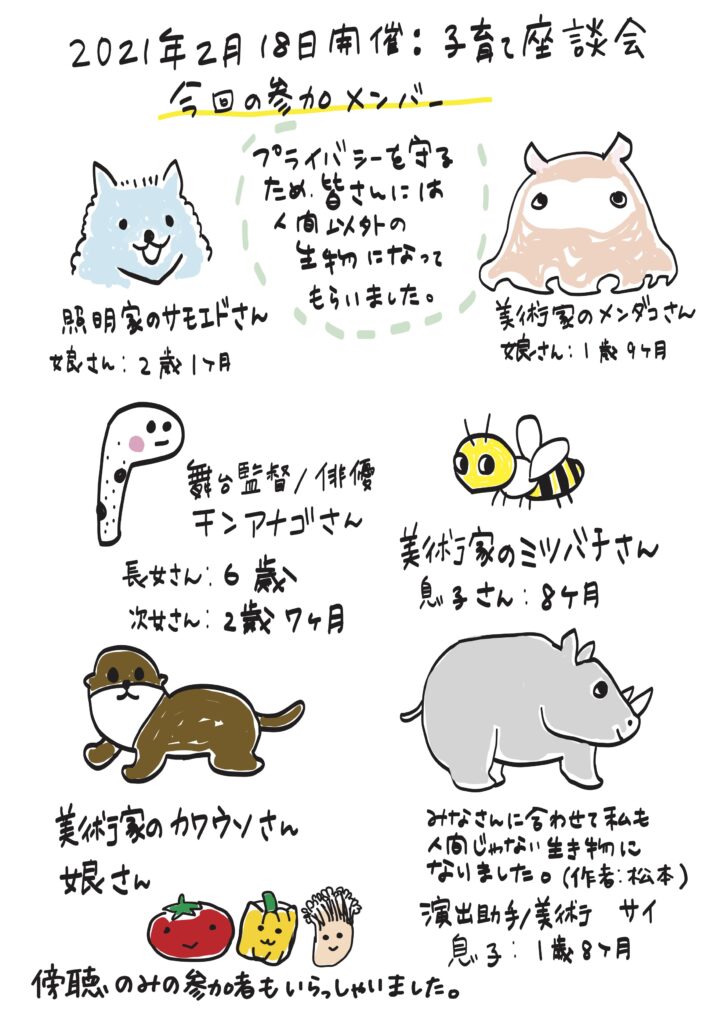 2021年2月18日開催：子育て座談会
今回の参加メンバー
プライバシーを守る
ため、皆さんには
人間以外の
生物になって
もらいました。
照明家のサモエドさん
娘さん：2歳1ヶ月
美術家のメンダコさん
娘さん：1歳9ヶ月
舞台監督/俳優
チンアナゴさん
長女さん：6歳
次女さん：2歳7ヶ月
美術家のミツバチさん
息子さん：8ヶ月
美術家のカワウソさん
娘さん
みなさんに合わせて私も
人間じゃない生き物に
なりました。(作者：松本)
演出助手/美術 サイ
息子：1歳8ヶ月
傍聴のみの参加者もいらっしゃいました。